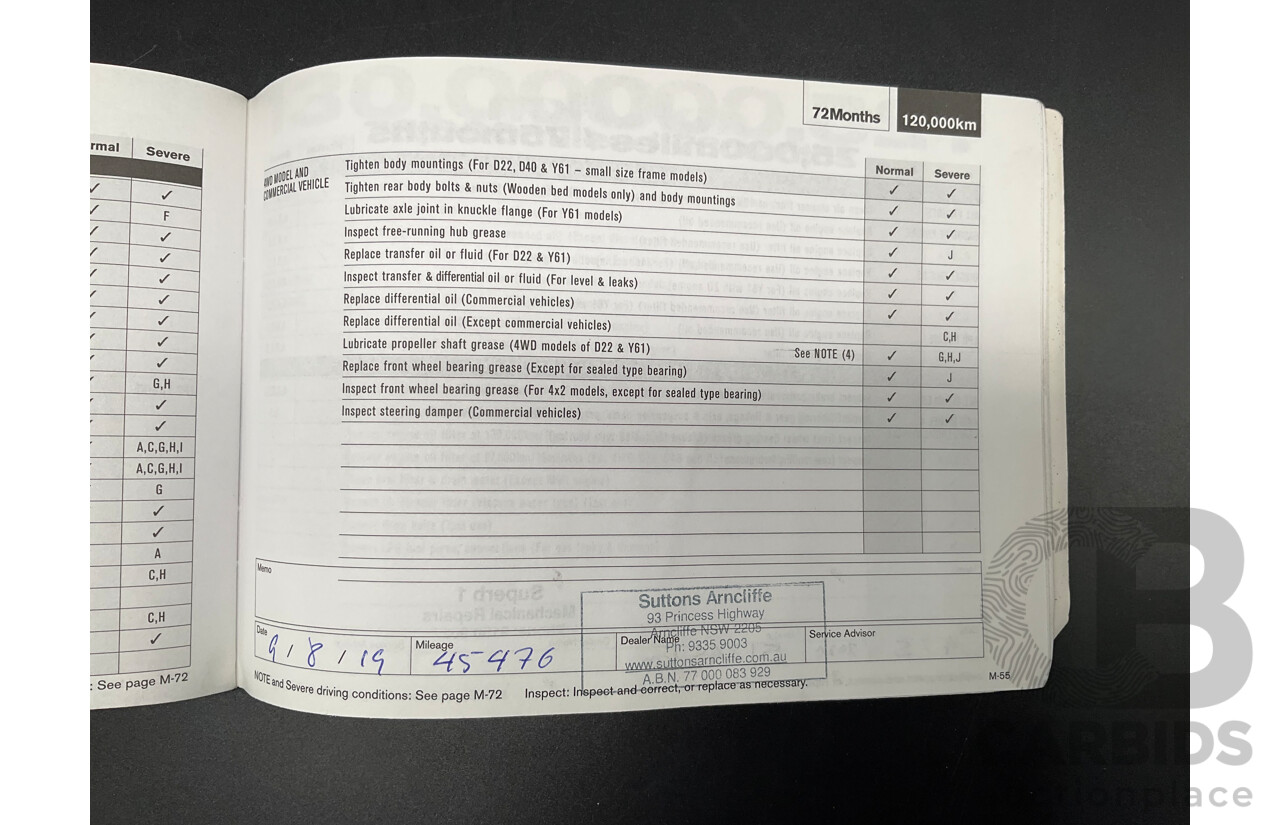 rmal Severe
✓ ✓
✓ F
✓ ✓
✓ ✓
✓ ✓
✓ ✓
✓ ✓
✓ ✓
✓
G,H
✓
✓
A,C,G,H,I
A,C,G,H,I
G
✓
✓
A
C,H
C,H
✓
: See page M-72
72Months 120,000km
4WD MODEL AND
COMMERCIAL VEHICLE
Normal Severe
Tighten body mountings (For D22, D40 & Y61 – small size frame models) ✓ ✓
Tighten rear body bolts & nuts (Wooden bed models only) and body mountings ✓ ✓
Lubricate axle joint in knuckle flange (For Y61 models) ✓ ✓
Inspect free-running hub grease ✓ J
Replace transfer oil or fluid (For D22 & Y61) ✓ ✓
Inspect transfer & differential oil or fluid (For level & leaks) ✓ ✓
Replace differential oil (Commercial vehicles) ✓ ✓
Replace differential oil (Except commercial vehicles) C,H
Lubricate propeller shaft grease (4WD models of D22 & Y61) See NOTE (4) ✓ G,H,J
Replace front wheel bearing grease (Except for sealed type bearing) ✓ J
Inspect front wheel bearing grease (For 4x2 models, except for sealed type bearing) ✓ ✓
Inspect steering damper (Commercial vehicles) ✓ ✓
Memo
Suttons Arncliffe
93 Princess Highway
Arncliffe NSW 2205
Ph: 9335 9003
www.suttonsarncliffe.com.au
A.B.N. 77 000 083 929
Date 9 / 8 / 19
Mileage 45476
Dealer Name
Service Advisor
NOTE and Severe driving conditions: See page M-72 Inspect: Inspect and correct, or replace as necessary.
M-55
CB
CARBIDS
auctionplace